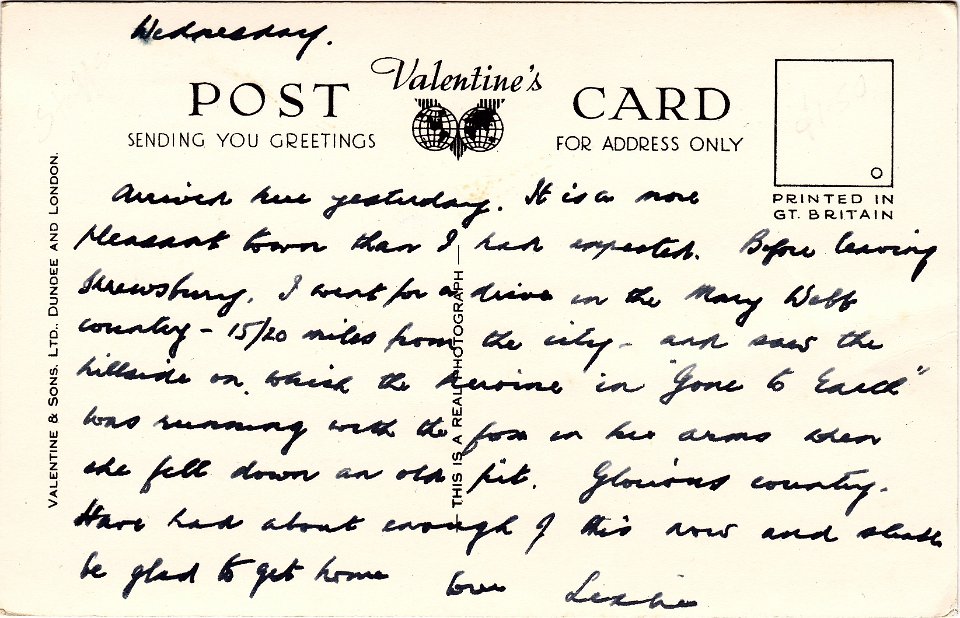 Wednesday.
Valentine's
POST CARD
SENDING YOU GREETINGS
FOR ADDRESS ONLY
PRINTED IN
GT. BRITAIN
VALENTINE & SONS, LTD., DUNDEE AND LONDON.
THIS IS A REAL PHOTOGRAPH
Arrived here yesterday. It is a more
pleasant town than I had expected. Before leaving
Shrewsbury, I went for a drive in the Mary Webb
country - 15/20 miles from the city - and saw the
hillside on which the heroine in "Gone to Earth"
was running with the fox in her arms when
she fell down an old pit. Glorious country.
Have had about enough of this now and shall
be glad to get home love Leslie